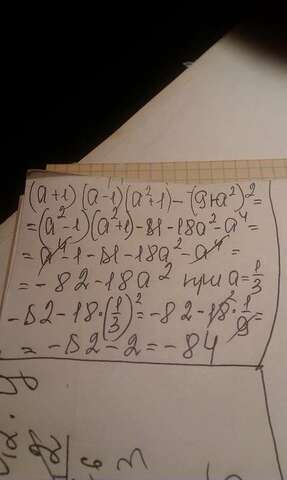 (a+1)(a-1)(a²+1)-(9+a²)²=
=(a²-1)(a²+1)-81-18a²-a⁴=
=a⁴-1-81-18a²-a⁴=
=-82-18a² при a=1/3
-82-18·(1/3)²=-82-18·1/9=
=-82-2=-84